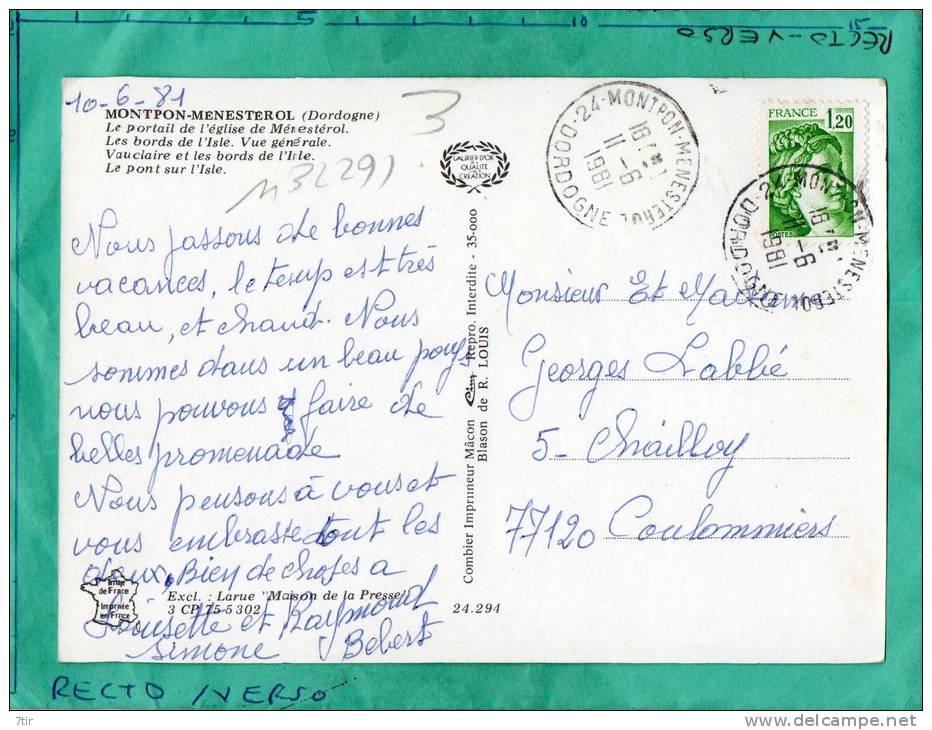 5 10 15
RECTO-VERSO
10-6-81
MONTPON-MENESTEROL (Dordogne)
Le portail de l'église de Ménestérol.
Les bords de l'Isle. Vue générale.
Vauclaire et les bords de l'Isle.
Le pont sur l'Isle.
3
LAURIER D'OR
QUALITE
CREATION
24-MONTPON-MENESTEROL
18H
11-6
1981
DORDOGNE
FRANCE 1,20
POSTES
24-MONTPON-MENESTEROL
18H
11-6
1981
DORDOGNE
Nous passons de bonnes
vacances, le temps est très
beau, et chaud. Nous
sommes dans un beau pays
nous pouvons faire de
belles promenade
Nous pensons à vous et
vous embrasse tout les
deux, Bien de choses a
Louisette et Raymond
Simone Bebert
Combier Imprimeur Mâcon Cim Repro. Interdite - 35-000
Blason de R. LOUIS
Monsieur Et Madame
Georges Labbé
5- Chailloy
77120 Coulommiers
Image
de France
Imprimée
en France
Excl. : Larue "Maison de la Presse"
3 CP 75-5302
24.294
RECTO /VERSO
7tir
www.delcampe.net